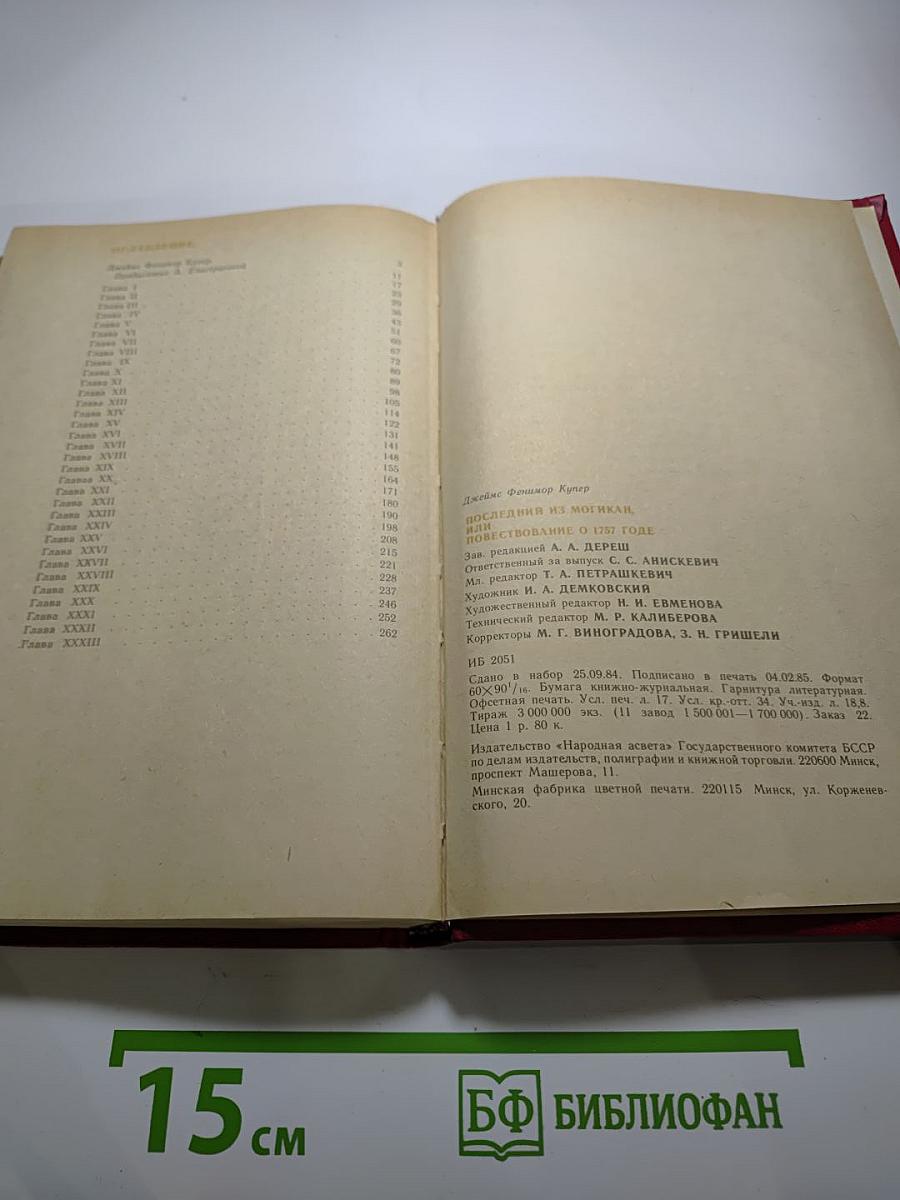 ОГЛАВЛЕНИЕ
Джеймс Фенимор Купер.
Предисловие
Глава I 11
Глава II 17
Глава III 23
Глава IV 29
Глава V 36
Глава VI 43
Глава VII 51
Глава VIII 60
Глава IX 67
Глава X 72
Глава XI 80
Глава XII 89
Глава XIII 98
Глава XIV 105
Глава XV 114
Глава XVI 122
Глава XVII 131
Глава XVIII 141
Глава XIX 148
Глава XX 155
Глава XXI 164
Глава XXII 171
Глава XXIII 180
Глава XXIV 190
Глава XXV 198
Глава XXVI 208
Глава XXVII 215
Глава XXVIII 221
Глава XXIX 228
Глава XXX 237
Глава XXXI 246
Глава XXXII 252
Глава XXXIII 262
Джеймс Фенимор Купер
ПОСЛЕДНИЙ ИЗ МОГИКАН,
ИЛИ
ПОВЕСТВОВАНИЕ О 1757 ГОДЕ
Зав. редакцией А. А. ДЕРЕШ
Ответственный за выпуск С. С. АНИСКЕВИЧ
Мл. редактор Т. А. ПЕТРАШКЕВИЧ
Художник И. А. ДЕМКОВСКИЙ
Художественный редактор Н. И. ЕВМЕНОВА
Технический редактор М. Р. КАЛИБЕРОВА
Корректоры М. Г. ВИНОГРАДОВА, З. Н. ГРИШЕЛИ
ИБ 2051
Сдано в набор 25.09.84. Подписано в печать 04.02.85. Формат
60×90¹/₁₆. Бумага книжно-журнальная. Гарнитура литературная.
Офсетная печать. Усл. печ. л. 17. Усл. кр.-отт. 34. Уч.-изд. л. 18,8.
Тираж 3 000 000 экз. (11 завод 1 500 001—1 700 000). Заказ 22.
Цена 1 р. 80 к.
Издательство «Народная асвета» Государственного комитета БССР
по делам издательств, полиграфии и книжной торговли. 220600 Минск,
проспект Машерова, 11.
Минская фабрика цветной печати. 220115 Минск, ул. Корженев-
ского, 20.
15 см
БФ БИБЛИОФАН